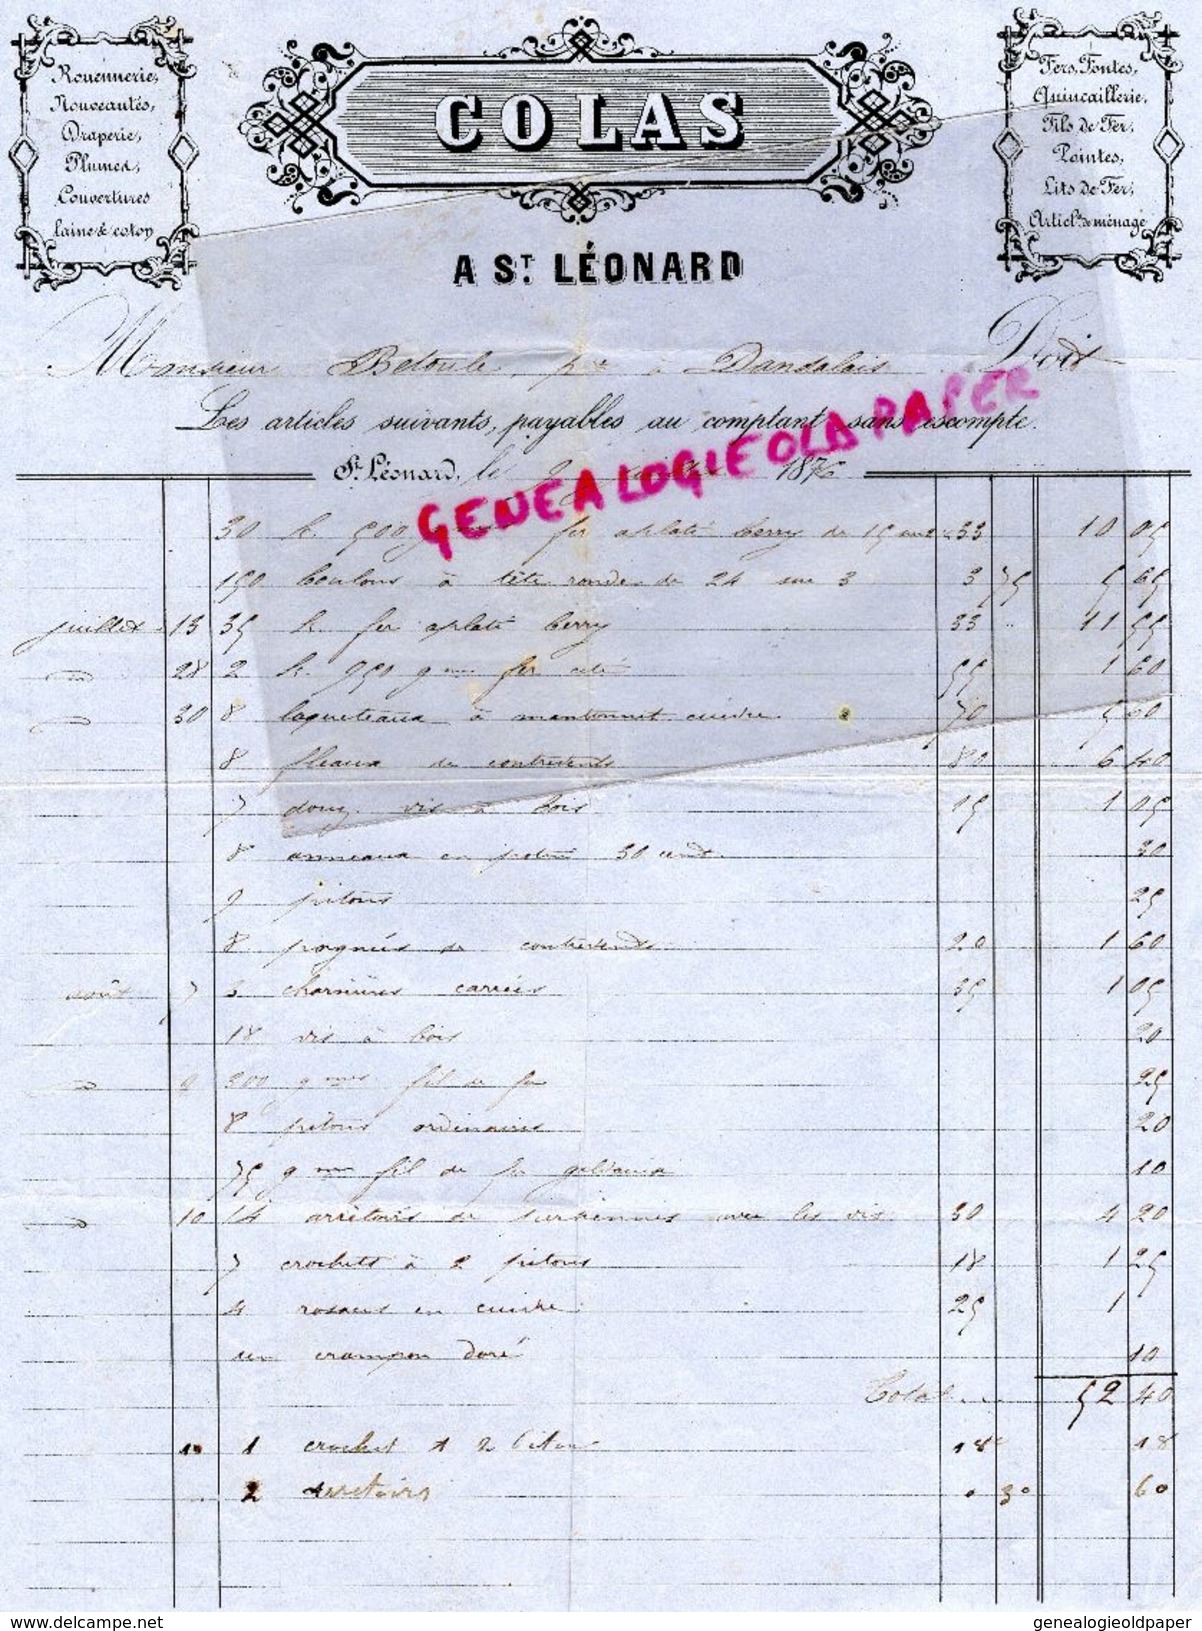 Rouennerie,
Nouveautés,
Draperie,
Plumes,
Couvertures
laine & coton
COLAS
A ST. LÉONARD
Fers, Fontes,
Quincaillerie,
Fils de Fer,
Pointes,
Lits de Fer,
Articles de ménage
Monsieur Betoule, à Doit
Les articles suivants, payables au comptant sans escompte.
St. Léonard, le 2 187
GENEALOGIEOLDPAPER
30 k 500 fer aplati berry de 33 10 05
150 boulons à tête ronde de 24 sur 3 3 75 5 65
juillet 13 35 k fer aplati berry 33 11 55
" 28 2 k. 950 gmes fer 55 1 60
" 30 8 loqueteaux à mentonnet cuivre. 70 5 60
8 fleaux de contrevents 80 6 40
7 douz vis à bois 15 1 05
8 anneaux en 30
9 pitons 25
8 poignées de contrevents 20 1 60
août 7 3 charnières carrées 35 1 05
18 vis à bois 20
" 9 300 gmes fil de fer 25
8 pitons ordinaires 20
75 gmes fil de fer galvanisé 10
" 10 14 arrêtoirs de persiennes avec les vis 30 4 20
7 crochets à 2 pitons 18 1 25
4 rosaces en cuivre 25 1
un crampon doré 10
Total 52 40
10 1 crochet à 2 pitons 18c 18
2 arretoirs 30 60
delcampe.net
genealogieoldpaper